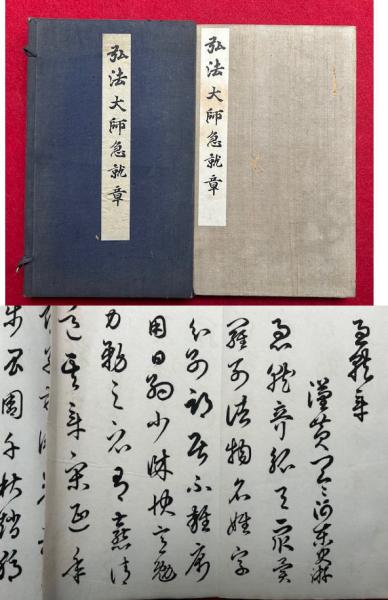 弘法大師急就章
弘法大師急就章
急就章
漢黄門令河東史游
急就奇觚與衆異
羅列諸物名姓字
分別部居不雜廁
用日約少誠快意勉
力務之必有憙請
道其章宋延年
步昌周千秋趙孺